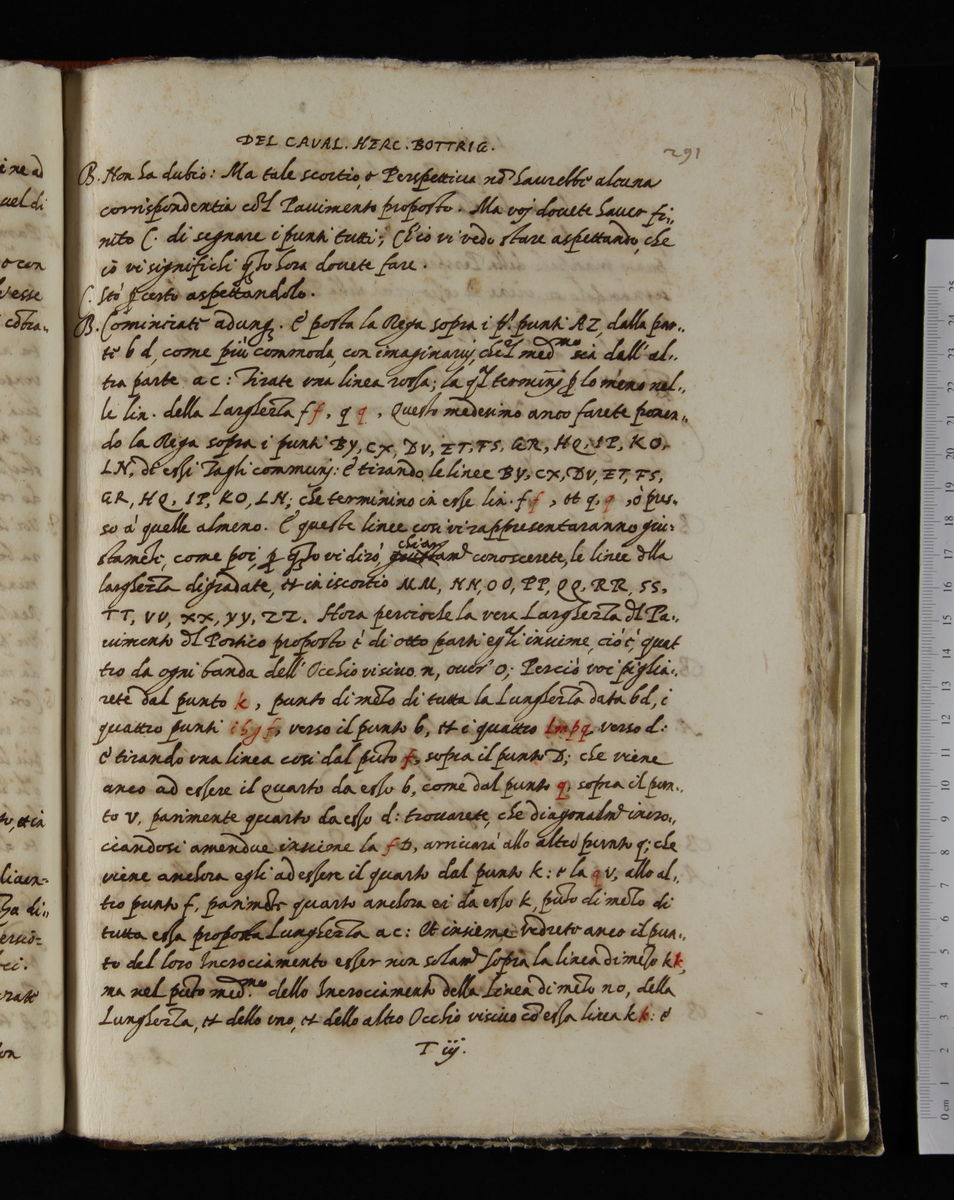 DEL CAVAL. HERC. BOTTRIG.
291
B. Non ha dubio: Ma tale scortio, o Perspettiva nō haurebbe alcuna
corrispondentia cōl Pavimento proposto. Ma voi dovete haver fi,,
nito C. di segnare i punti tutti; che io vi vedo stare aspettando, che
io vi significhi q̄to hora dovete fare.
C. Stò p̄ certo aspettandolo.
B. Cominciate adunq. E posta la Rega sopra i p.i punti AZ, dalla par,,
te b d, come più commoda, con imaginarvi, che'l med.mo sia dall'al,,
tra parte a c: Tirate una linea rossa; la q̄l termini p̄ lo meno nel,,
le lin. della Larghezza f f, q q, Questo medesimo anco farete ponen,,
do la Rega sopra i punti BY, CX, DV, ET, FS, GR, HQ, IP, KO,
LN, de essi Tagli communi: E tirando le linee BY, CX, DV, ET, FS,
GR, HQ, IP, KO, LN; che terminino in esse lin. f f, et q, q, ò pres,
so a' quelle almeno. E queste linee così vi rappresentaranno giu,
stamēte, come poi, p̄ q̄to vi dirò, chiaram.te conoscerete, le linee d'lla
larghezza digradate, et in iscortio MM, NN, OO, PP, QQ, RR, SS,
TT, VV, XX, YY, ZZ. Hora percioche la vera Larghezza d'l Pa,,
vimento d'l Portico proposto è di otto parti eguali insieme, cioè quat
tro da ogni banda dell'Occhio visivo n, over' o; Perciò voi piglia,,
rete dal punto k, punto di mezo di tutta la Lunghezza data b d, i
quattro punti i h g f, verso il punto b, et i quattro l m p q verso d:
E tirando una linea così dal pūto f, sopra il punto D; che viene
anco ad essere il Quarto da esso b, come dal punto q, sopra il pun,,
to V, parimente quarto da esso d: trovarete, che diagonalm.te incro,,
ciandosi amendue insieme la f D, arrivarà allo altro punto q; che
viene anchora egli ad essere il quarto dal punto k: e la q V, allo al,,
tro punto f, parimēte quarto anchora ei da esso k, pūto di mezo di
tutta essa proposta Lunghezza a c: Et insieme vedrete anco il pun,,
to del loro Incrociamento esser non solam.te sopra la linea di mezo k k,
ma nel pūto med.mo dello Incrociamento della Linea di mezo n o, della
Lunghezza, et dello uno, et dello altro Occhio visivo cō essa linea k k: e
T iij.